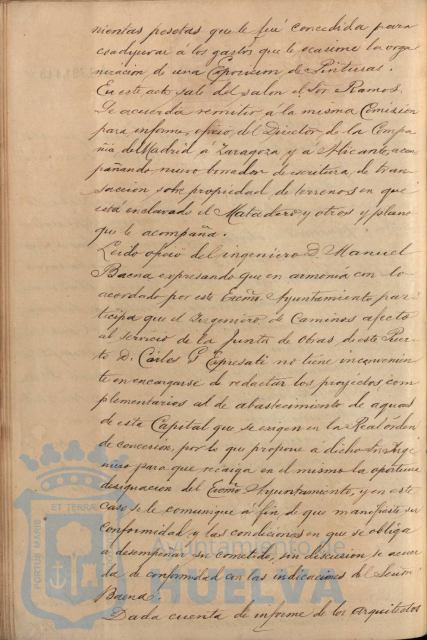 nientas pesetas que le fué concedida para
coadyuvar á los gastos que le ocasione la orga
nización de una Exposicion de Pinturas.
En este acto sale del salon el Sor Ramos.
Se acuerda remitir á la misma Comisión
para informe, oficio del Director de la Compa
ñia de Madrid á Zaragoza y á Alicante, acom
pañando nuevo borrador de escritura de tran
sacción sobre propiedad de terrenos en que
está enclavado el Matadero y otros y plano
que le acompaña.
Leido oficio del ingeniero D. Manuel
Baena expresando que en armonía con lo
acordado por este Excmo. Ayuntamiento, par
ticipa que el Ingeniero de Caminos afecto
al servicio de la Junta de Obras de este Puer
to D. Carlos G. Espresati no tiene inconvenien
te en encargarse de redactar los proyectos com
plementarios al de abastecimiento de aguas
de esta Capital que se exigen en la Real orden
de concesión, por lo que propone á dicho Inge
niero para que recaiga en el mismo la oportuna
designacion del Excmo. Ayuntamiento, y en este
caso se le comunique á fin de que manifieste su
conformidad y las condiciones en que se obliga
á desempeñar su cometido, sin discusion se acuer
da de conformidad con las indicaciones del Señor
Baena.
Dada cuenta de informe de los Arquitectos
PORTUS MARIS ET TERRAE
Ayuntamiento de
HUELVA